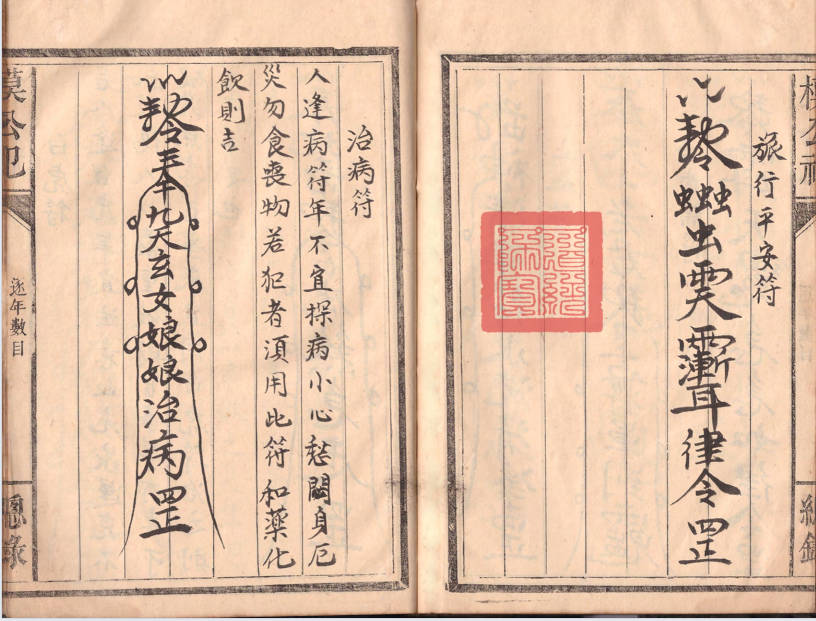 旅行平安符
律令罡
道經師寶
治病符
人逢病符年不宜探病小心愁身厄
災勿食喪物若犯者須用此符和藥化
飲則吉
奉九天玄女娘娘治病罡
逐年數目
總錄